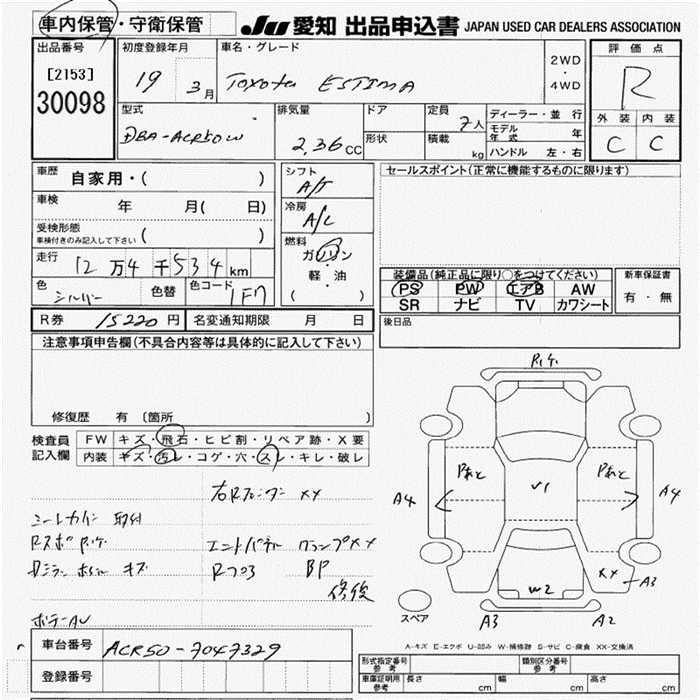 車内保管・守衛保管
JU 愛知 出品申込書 JAPAN USED CAR DEALERS ASSOCIATION
出品番号
[2153]
30098
初度登録年月
19 3月
車名・グレード
Toyota ESTIMA
2WD
・
4WD
評価点
R
外装 内装
C C
型式
DBA-ACR50W
排気量
2.36 cc
ドア
形状
定員
7人
積載
kg
ディーラー・並行
モデル年式 年
ハンドル 左・右
車歴
自家用・( )
車検
年 月( 日)
受検形態
車検付きのみ記入して下さい ( )
走行
12万4千534km
色
シルバー
色替
色コード
1F7
シフト
A/T
冷房
A/C
燃料
ガソリン
・
軽・油
( )
セールスポイント(正常に機能するものに限ります)
装備品(純正品に限り○をつけてください)
PS PW エアB AW
SR ナビ TV カワシート
新車保証書
有・無
R券 15220円
名変通知期限 月 日
後日品
注意事項申告欄(不具合内容等は具体的に記入して下さい)
修復歴 有 〔箇所 〕
検査員記入欄
FW キズ・飛石・ヒビ割・リペア跡・X要
内装 キズ・汚レ・コゲ・穴・スレ・キレ・破レ
右Rフェンダー XX
シートカバー 取付
エンドパネル クランプXX
キズ
BP
修復
ボデーAU
Rゲ
Pあと Pあと
V1
A4 A4
XX
A3
W2
A3 A2
スペア
A-キズ E-エクボ U-凹み W-補修跡 S-サビ C-腐食 XX-交換済
車台番号
ACR50-7047329
登録番号
型式指定番号 参考
類別区分番号 参考
車庫証明用 参考
長さ cm
幅 cm
高さ cm